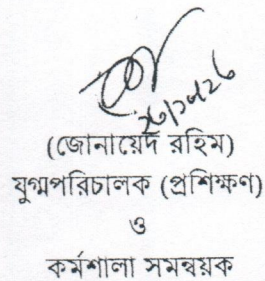 (জোনায়েদ রহিম)
যুগ্মপরিচালক (প্রশিক্ষণ)
ও
কর্মশালা সমন্বয়ক